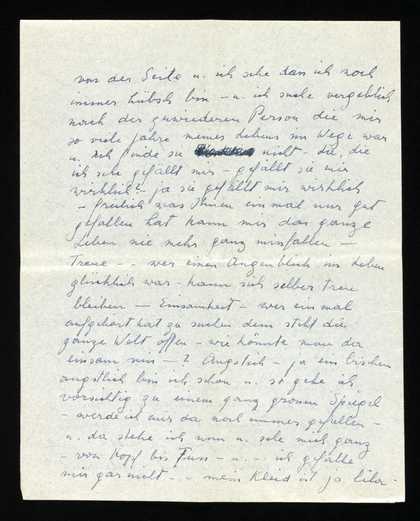 von der Seite u. ich sehe dass ich noch
immer hübsch bin - u. ich suche vergeblich
nach der zuwiederen Person die mir
so viele Jahre meines Lebens im Wege war
u. ich finde sie nicht - die, die
ich sehe gefällt mir - gefällt sie mir
wirklich? - ja sie gefällt mir wirklich
- freilich was einem einmal nur gut
gefallen hat kann mir das ganze
Leben nie mehr ganz missfallen -
Treue - .. wer einen Augenblick im Leben
glücklich war - kann sich selber treu
bleiben - Einsamkeit - wer einmal
aufgehört hat zu suchen dem steht die
ganze Welt offen - wie könnte man da
einsam sein - ? Ängstlich - ja ein bischen
ängstlich bin ich schon u. so gehe ich
vorsichtig zu einem ganz grossen Spiegel
- werde ich mir da noch immer gefallen -
u. da stehe ich nun u. sehe mich ganz
- von Kopf bis Fuss - u. .. ich gefalle
mir gar nicht - .. mein Kleid ist ja lila -